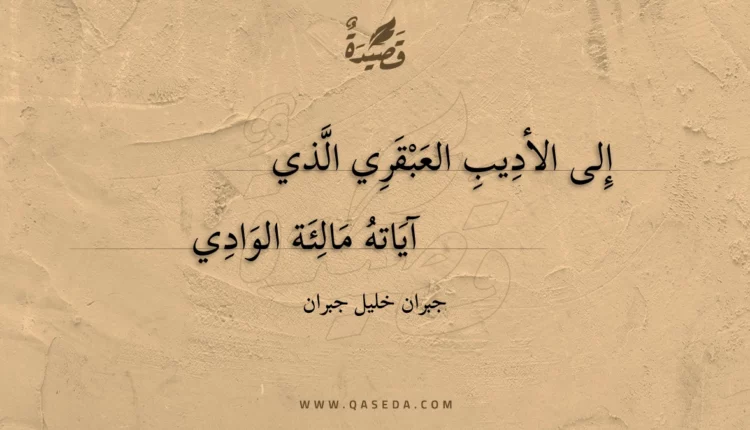 قَصِيدَةٌ
إِلى الأدِيبِ العَبْقَرِي الَّذي
آيَاتهُ مَالِئَة الوَادِي
جبران خليل جبران
WWW.QASEDA.COM